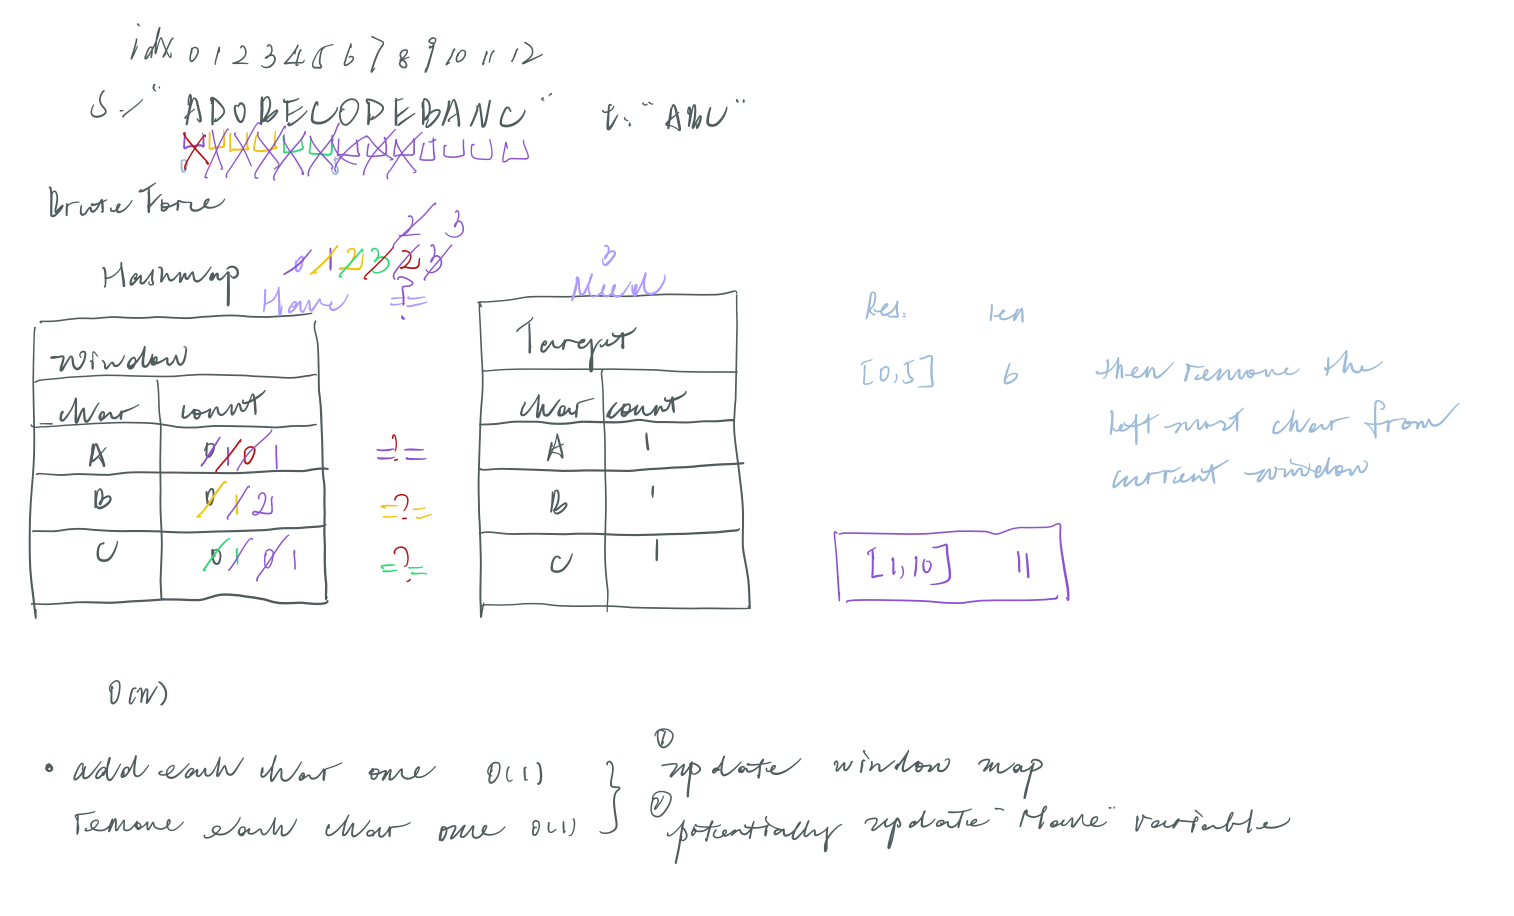 idx 0 1 2 3 4 5 6 7 8 9 10 11 12
S = " ADOBECODEBANC " t: "ABC"
Brute Force
2 3
Hashmap 0 1 2 3 2 3
3
Have =?= Need
Window
char count
A 0 1 0 1 =?=
B 0 1 2 =?=
C 0 1 0 1 =?=
Target
char count
A 1
B 1
C 1
Res. len
[0,5] 6 then remove the
left most char from
current window
[1,10] 11
O(n)
• add each char one O(1)
remove each char one O(1)
① update window map
② potentially update "Have" variable